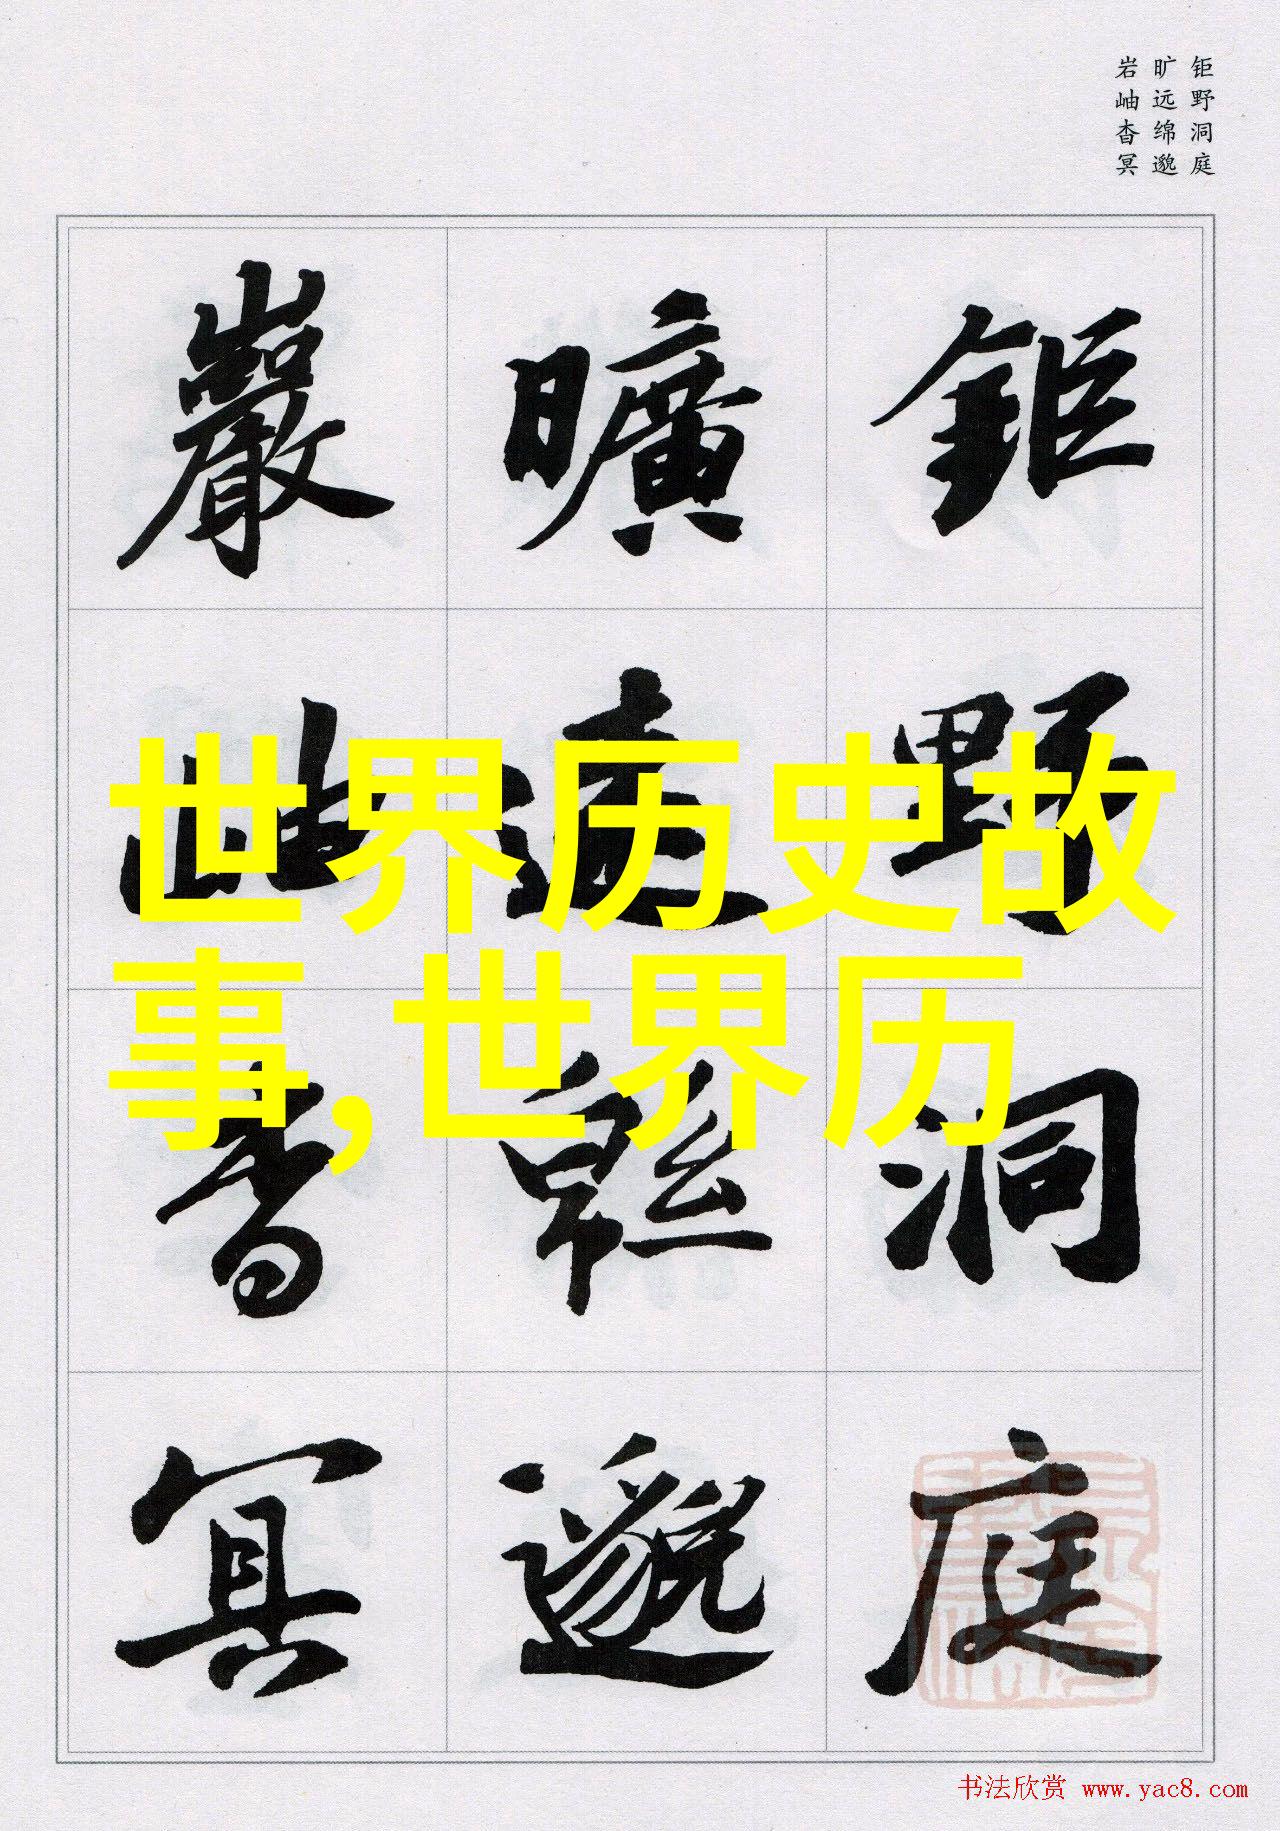 钜野洞庭
旷远绵邈
岩岫杳冥
鉅野洞庭
曠遠綿邈
巖岫杳冥
世界历史故
事,世界历
书法欣赏 www.yac8.com